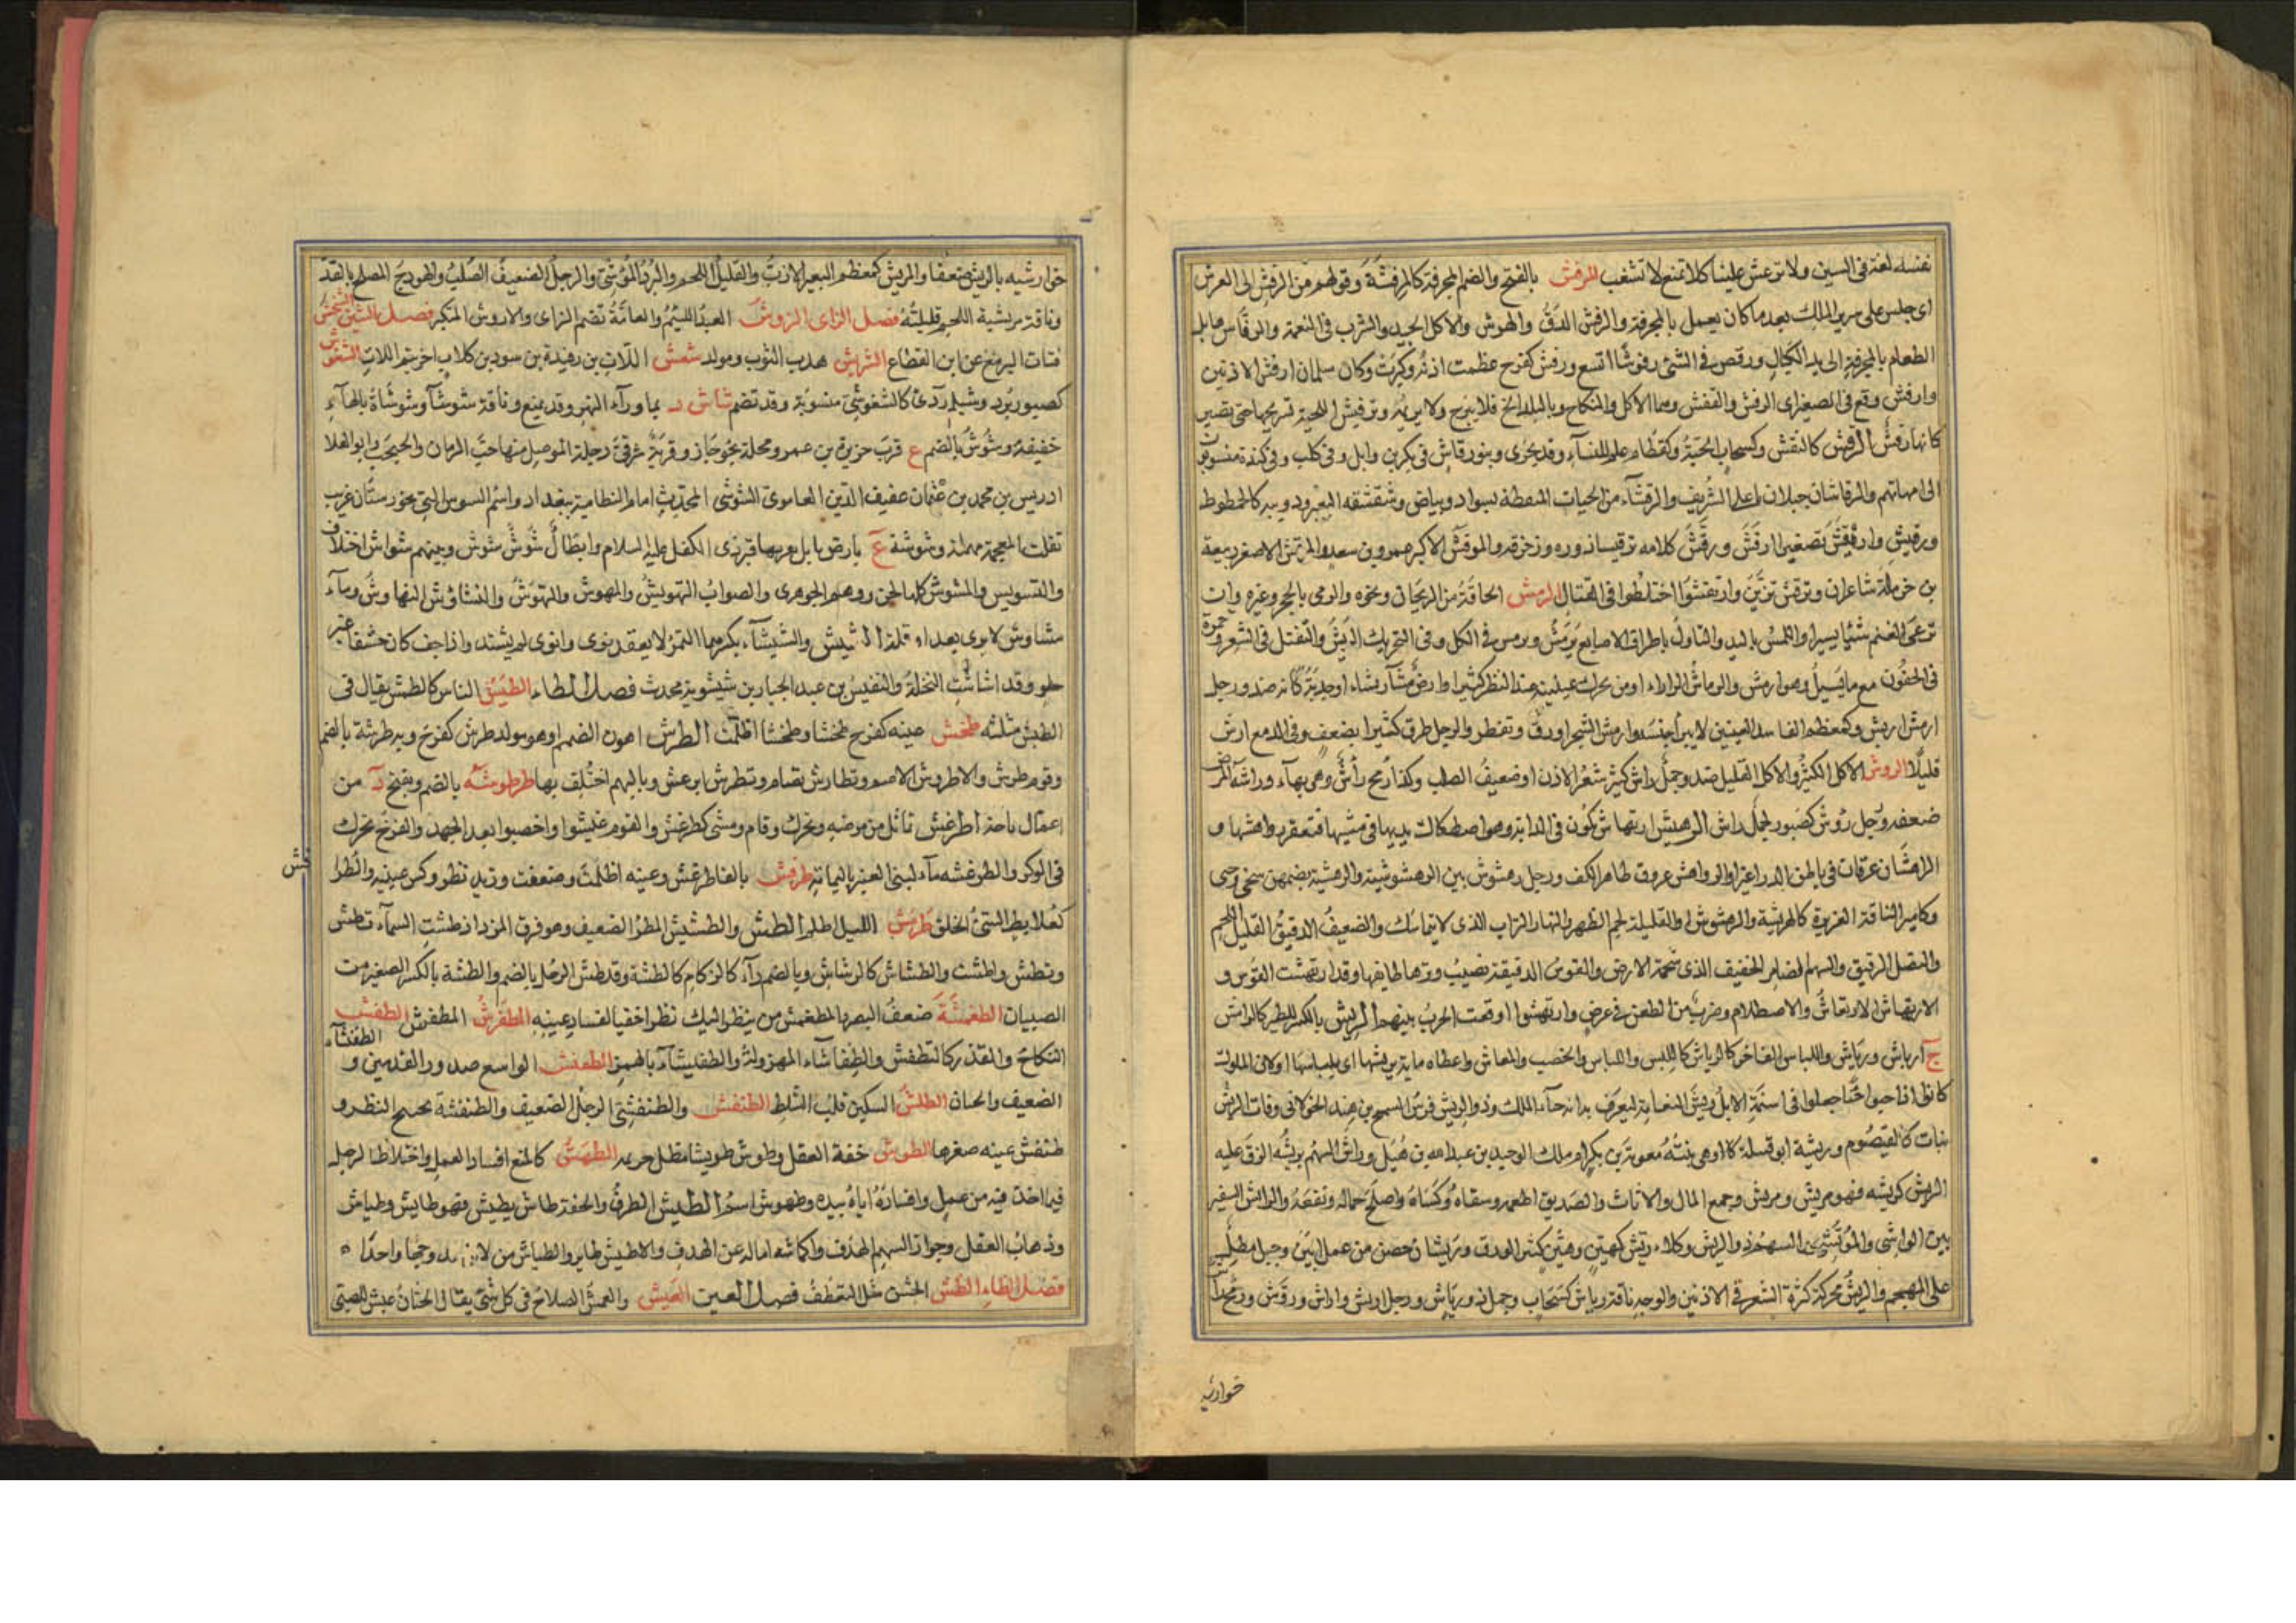 نفسه لغة فى السين ولا ترعش علينا كلا تمنع لا تشغب الرفش بالفتح والضم المجرفة كالمرفشة وقولهم من الرفش الى العرش
اى جلس على سرير الملك بعد ما كان يعمل بالمجرفة والرفش الدق والهوش والاكل الجيد والشرب فى النعمة والرفاش هايل
الطعام بالمجرفة الى يد الكيال ورقص فى الشئ رفوشا اتسع ورفش كفرح عظمت اذنه وكبرت وكان سلمان ارفش الاذنين
وارفش وقع فى الصغيراى الرفش والقفش وهما الاكل والنكاح وبالبلد الخ فلا يبرح ولا يريم وترفيش اللحية تسريحها حتى تصير
كانها رفش الرقش كالنقش وكسحاب الحية وكقطام علم للنساء وقد يجرى وبنو رقاش فى بكر بن وايل وفى كلب وفى كندة منسوبون
الى امهاتهم والرقاشان جبلان باعلى الشريف والرقشاء من الحيات المنقطة بسواد وبياض وشقشقة البعير ودويبة كالخطوط
ورقيش وارقيش تصغيرا ارقش ورقش كلامه ترقيسا زوره وزخرفه والمرقش الاكبر عمرو بن سعد والمرقش الاصغر ربيعة
بن حرملة شاعران وترقش تزين وارتقشوا اختلطوا فى القتال الرمش الطاقة من الريحان ونحوه والرمى بالحجر وغيره وان
ترعى الغنم شيئا يسيرا واللمس باليد والتناول باطراف الاصابع يرمش ويرمش فى الكل وفى التحريك الربش والتفتل فى الشعر وحمرة
فى الجفون مع ماء يسيل وهو ارمش والرماش الراراء ومن يحرك عينيه عند النظر كثيرا وارض رمشاء ربشاء او جدبة كانه ضد ورجل
ارمش اربش وكمعظم الفاسد العينين لا يبرأ جفنه وارمش الشجر اورق وتفطر والرجل طرف كثيرا بضعف وفى الدمع ارش
قليلا الروش الاكل الكثير والاكل القليل ضد وجمل راش كثير شعر الاذن او ضعيف الصلب وكذا رمح رأش وهى بهاء وراشه المرض
ضعفه ورجل رؤش كصبور لجمل راش الرهيش ارتهاش يكون فى الدابة وهو اصطكاك يديها فى مشيها فتعقر رواهشها و
الراهشان عرقان فى باطن الذراعين او الرواهش عروق ظاهر الكف ورجل رهشوش بين الرهشوشية والرهشة بضمهن سخى حيى
وكامير الناقة الغزيرة كالرهيشة والرهشوش او القليلة لحم الظهر والمنهار التراب الذى لا يتماسك والضعيف الدقيق القليل اللحم
والنصل الرقيق والسهم الضامر الخفيف الذى سحجته الارض والقوس الدقيقة تصيب وترها طايفها وقد ارتهشت القوس و
الارتهاش الارتعاش والاصطلام وضرب من الطعن فى عرض وارتهشوا وقعت الحرب بينهم الريش بالكسر للطير كالراش
ج ارياش ورياش واللباس الفاخر كالرياش كاللبس واللباس والخصب والمعاش واعطاه ماية بريشها اى بلباسها اولان الملوك
كانوا اذا حبوا حباء جعلوا فى اسنمة الابل ريش النعامة ليعرف بانه حباء الملك وذو الريش فرس السمح بن هند الخولانى وذات الريش
نبات كالقيصوم وريشة ابو قبيلة كا اوهى بنت معوية بن بكر ام ملك الوحيد بن عبد الله بن هبيل وراش السهم يريشه الزق عليه
الريش كريشه فهو مريش ومريش وجمع المال والاثاث والصديق اطعمه وسقاه وكساه واصلح حاله ونفعه والرايش السفير
بين الراشى والمرتشى والسهم ذو الريش وكلاء ريش كهين وهين كثير الورق وريشان حصن من عمل ابين وجبل مطل
على المهجم والريش محركة كثرة الشعر فى الاذنين والوجه ناقة رياش كسحاب وجمل ذو رياش ورجل اريش وراش ورقش ورمح راش
خواريه
خوار شيه بالريش ضعفا والمريش كمعظم البعير الازب والقليل اللحم والبرد الموشى والرجل الضعيف الصلب والهودج المصلح بالقد
وناقة مريشة اللحم قليلته فصل الزاى الزوش العبد اللئيم والعامة تضم الزاى والازوش المتكبر فصل الشين الشخش
فتات اليرمع عن ابن القطاع الشربش هدب الثوب ومولد شعش اللات بن رفيدة بن سود بن كلاب اخو تيم اللات الشغوش
كصبور برد وشيلم ردئ كالشغوشى منسوبة وقد تضم شاش د بما وراء النهر وقد يمنع وناقة شوشاء وشوشاة بالهاء
خفيفة وشوش بالضم ع قرب جزيرة بن عمرو ومحلة بجرجان وقرية شرقى دجلة الموصل منها حب الرمان والحبحب وابو العلا
ادريس بن محمد بن عثمان عفيف الدين العاموى الشوشى المحدث امام النظامية ببغداد واسم السوس التى بخوزستان غريب
نقلت المعجمة مهملة وشوشة ع بارض بابل بقربها قبر ذى الكفل عليه السلام وابطال شوش شوش وبينهم شواش اختلاف
والتشويش والمشوش كلها لحن ووهم الجوهرى والصواب التهويش والمهوش والتهوش والنشاوش التهاوش وماء
مشاوش لا يرى بعدا وقلة الشيش والشيشاء بكسرهما التمر لا يعقد بنوى وانوى لم يشتد واذا جف كان حشفا غير
حلو وقد اشاشت النخلة والنفيس بن عبد الجبار بن شيشوية محدث فصل الطاء الطبش الناس كالطمش يقال فى
الطبش مثله طخش عينه كفرح طخشا وطخشا اظلمت الطرش اهون الصمم او هو مولد طرش كفرح وبه طرشة بالضم
وقوم طرش والاطروش الاصم وتطارش تصام وتطرش ابرعش وبالبهم اختلف بها طرطوشة بالضم وبفتح د من
اعمال باجة اطرغش تماثل من مرضه وتحرك وقام ومشى كطرغش والقوم غيثوا واخصبوا بعد الجهد والفرخ تحرك
فى الوكر والطرغشه ماء لبنى العنبر باليمامة طرفش بالفاطرغش وعينه اظلمت وضعفت وزيد نظر وكسر عينيه والطرا
فش
كعلابط السئ الخلق طرمش الليل اظلم الطش والطشيش المطر الضعيف وهو فوق الرذاذ طشت السماء تطش
وتطش واطشت والطشاش كالرشاش وبالضم داء كالزكام كالطشة وقد طش الرجل بالضم والطشة بالكسر الصغير من
الصبيان الطغمشة ضعف البصر المطغمش من ينظر اليك نظرا خفيا لفساد عينه المطفرش المطغمش الطفش
الطفنشاء
النكاح والقذر كالتطفش والطفاشاء المهزولة والطفيشاء بالهمز الطفنش الواسع صدور القدمين و
الضعيف والجبان الطلش السكين قلب الشلط الطنفش والطنفشى الرجل الضعيف والطنفشة تحميج النظر و
طنفش عينه صغرها الطوش خفة العقل وطوش طويشا مطل غريمه الطهش كالمنع افساد العمل واختلاط الرجل
فيما اخذ فيه من عمل وافساده اياه بيده وطهوش اسم الطيش الطرف والخفة طاش يطيش فهو طايش وطياش
وذهاب العقل وجواز السهم الهدف واطاشه اماله عن الهدف والاطيش طاير والطياش من لا يقصد وجها واحدا
فصل الظاء الظش الخشن مثل الشظف فصل العين العبش والعمش الصلاح فى كل شئ يقال الختان عبش الصبى